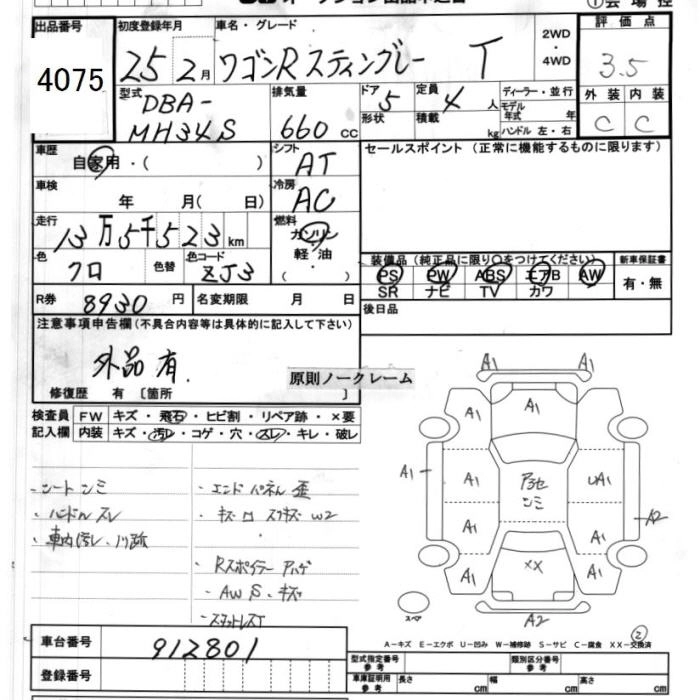 出品番号
4075
初度登録年月
25 2月
車名・グレード
ワゴンR スティングレー T
2WD
・
4WD
評価点
3.5
外装 内装
C C
型式
DBA-
MH34S
排気量
660 cc
ドア 5
形状
定員 4 人
積載 kg
ディーラー・並行
モデル年式 年
ハンドル 左・右
車歴
自家用・( )
シフト
AT
車検
年 月( 日)
冷房
AC
走行
13万5千523km
燃料
ガソリン
・
軽・油
( ・ )
色
クロ
色替
色コード
ZJ3
セールスポイント(正常に機能するものに限ります)
装備品(純正品に限り○をつけてください)
PS PW ABS エアB AW
SR ナビ TV カワ
新車保証書
有・無
R券 8930 円
名変期限 月 日
後日品
注意事項申告欄(不具合内容等は具体的に記入して下さい)
外品有.
原則ノークレーム
修復歴 有 〔箇所 〕
検査員
記入欄
FW キズ・飛石・ヒビ割・リペア跡・×要
内装 キズ・汚レ・コゲ・穴・スレ・キレ・破レ
・シートシミ
・ハンドルスレ
・車内汚レ.
・エンドパネル歪
・Rスポイラー ハゲ
・AW S.キズ
・スタットレスT
A1 A1
A1 A1 A1
A1 A1
A1 UA1
シミ
A2
A1 A1
A1 XX A1
A1 A1
A2
スペア
A-キズ E-エクボ U-凹み W-補修跡 S-サビ C-腐食 XX-交換済
②
車台番号 912801
登録番号
型式指定番号
参考
類別区分番号
参考
車庫証明用
参考
長さ cm 幅 cm 高さ cm